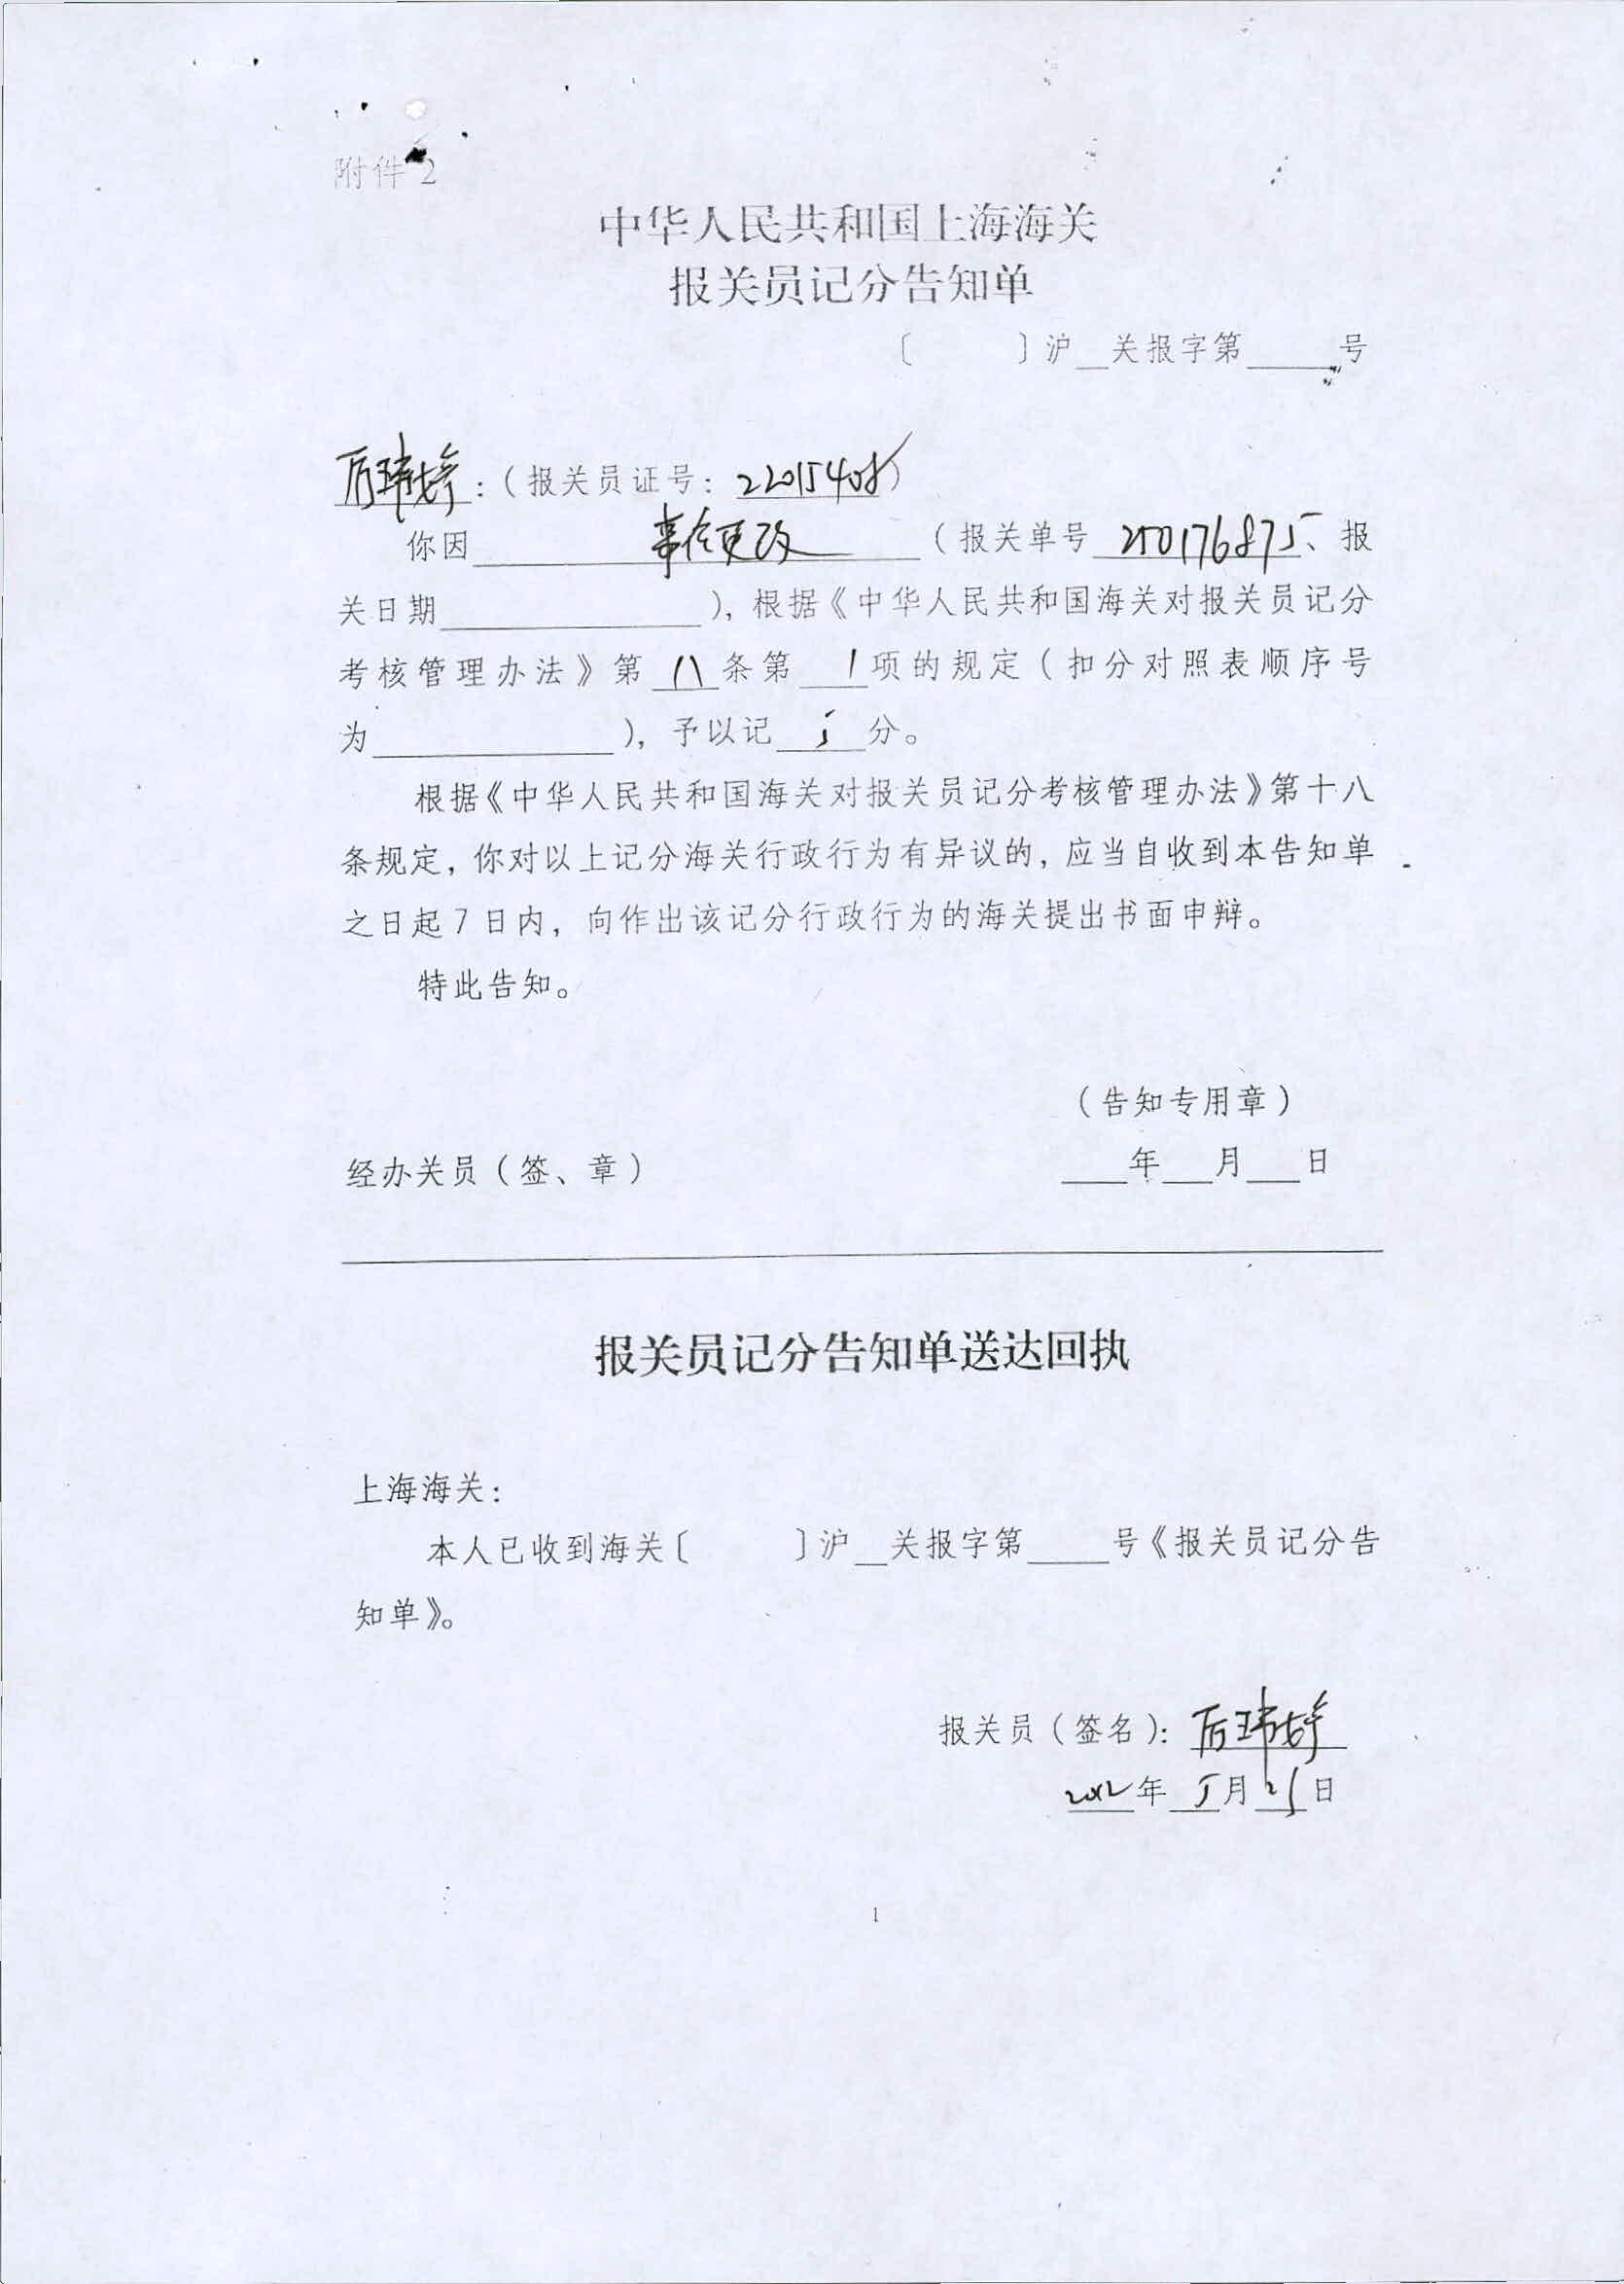 附件2
中华人民共和国上海海关
报关员记分告知单
〔 〕沪__关报字第____号
:(报关员证号:22015408)
你因 更改 (报关单号 250176875、报
关日期________),根据《中华人民共和国海关对报关员记分
考核管理办法》第 八 条第 1 项的规定(扣分对照表顺序号
为________),予以记 5 分。
根据《中华人民共和国海关对报关员记分考核管理办法》第十八
条规定,你对以上记分海关行政行为有异议的,应当自收到本告知单
之日起7日内,向作出该记分行政行为的海关提出书面申辩。
特此告知。
(告知专用章)
经办关员(签、章) ___年___月___日
报关员记分告知单送达回执
上海海关:
本人已收到海关〔 〕沪__关报字第____号《报关员记分告
知单》。
报关员(签名):
2012年 5月 25日
1